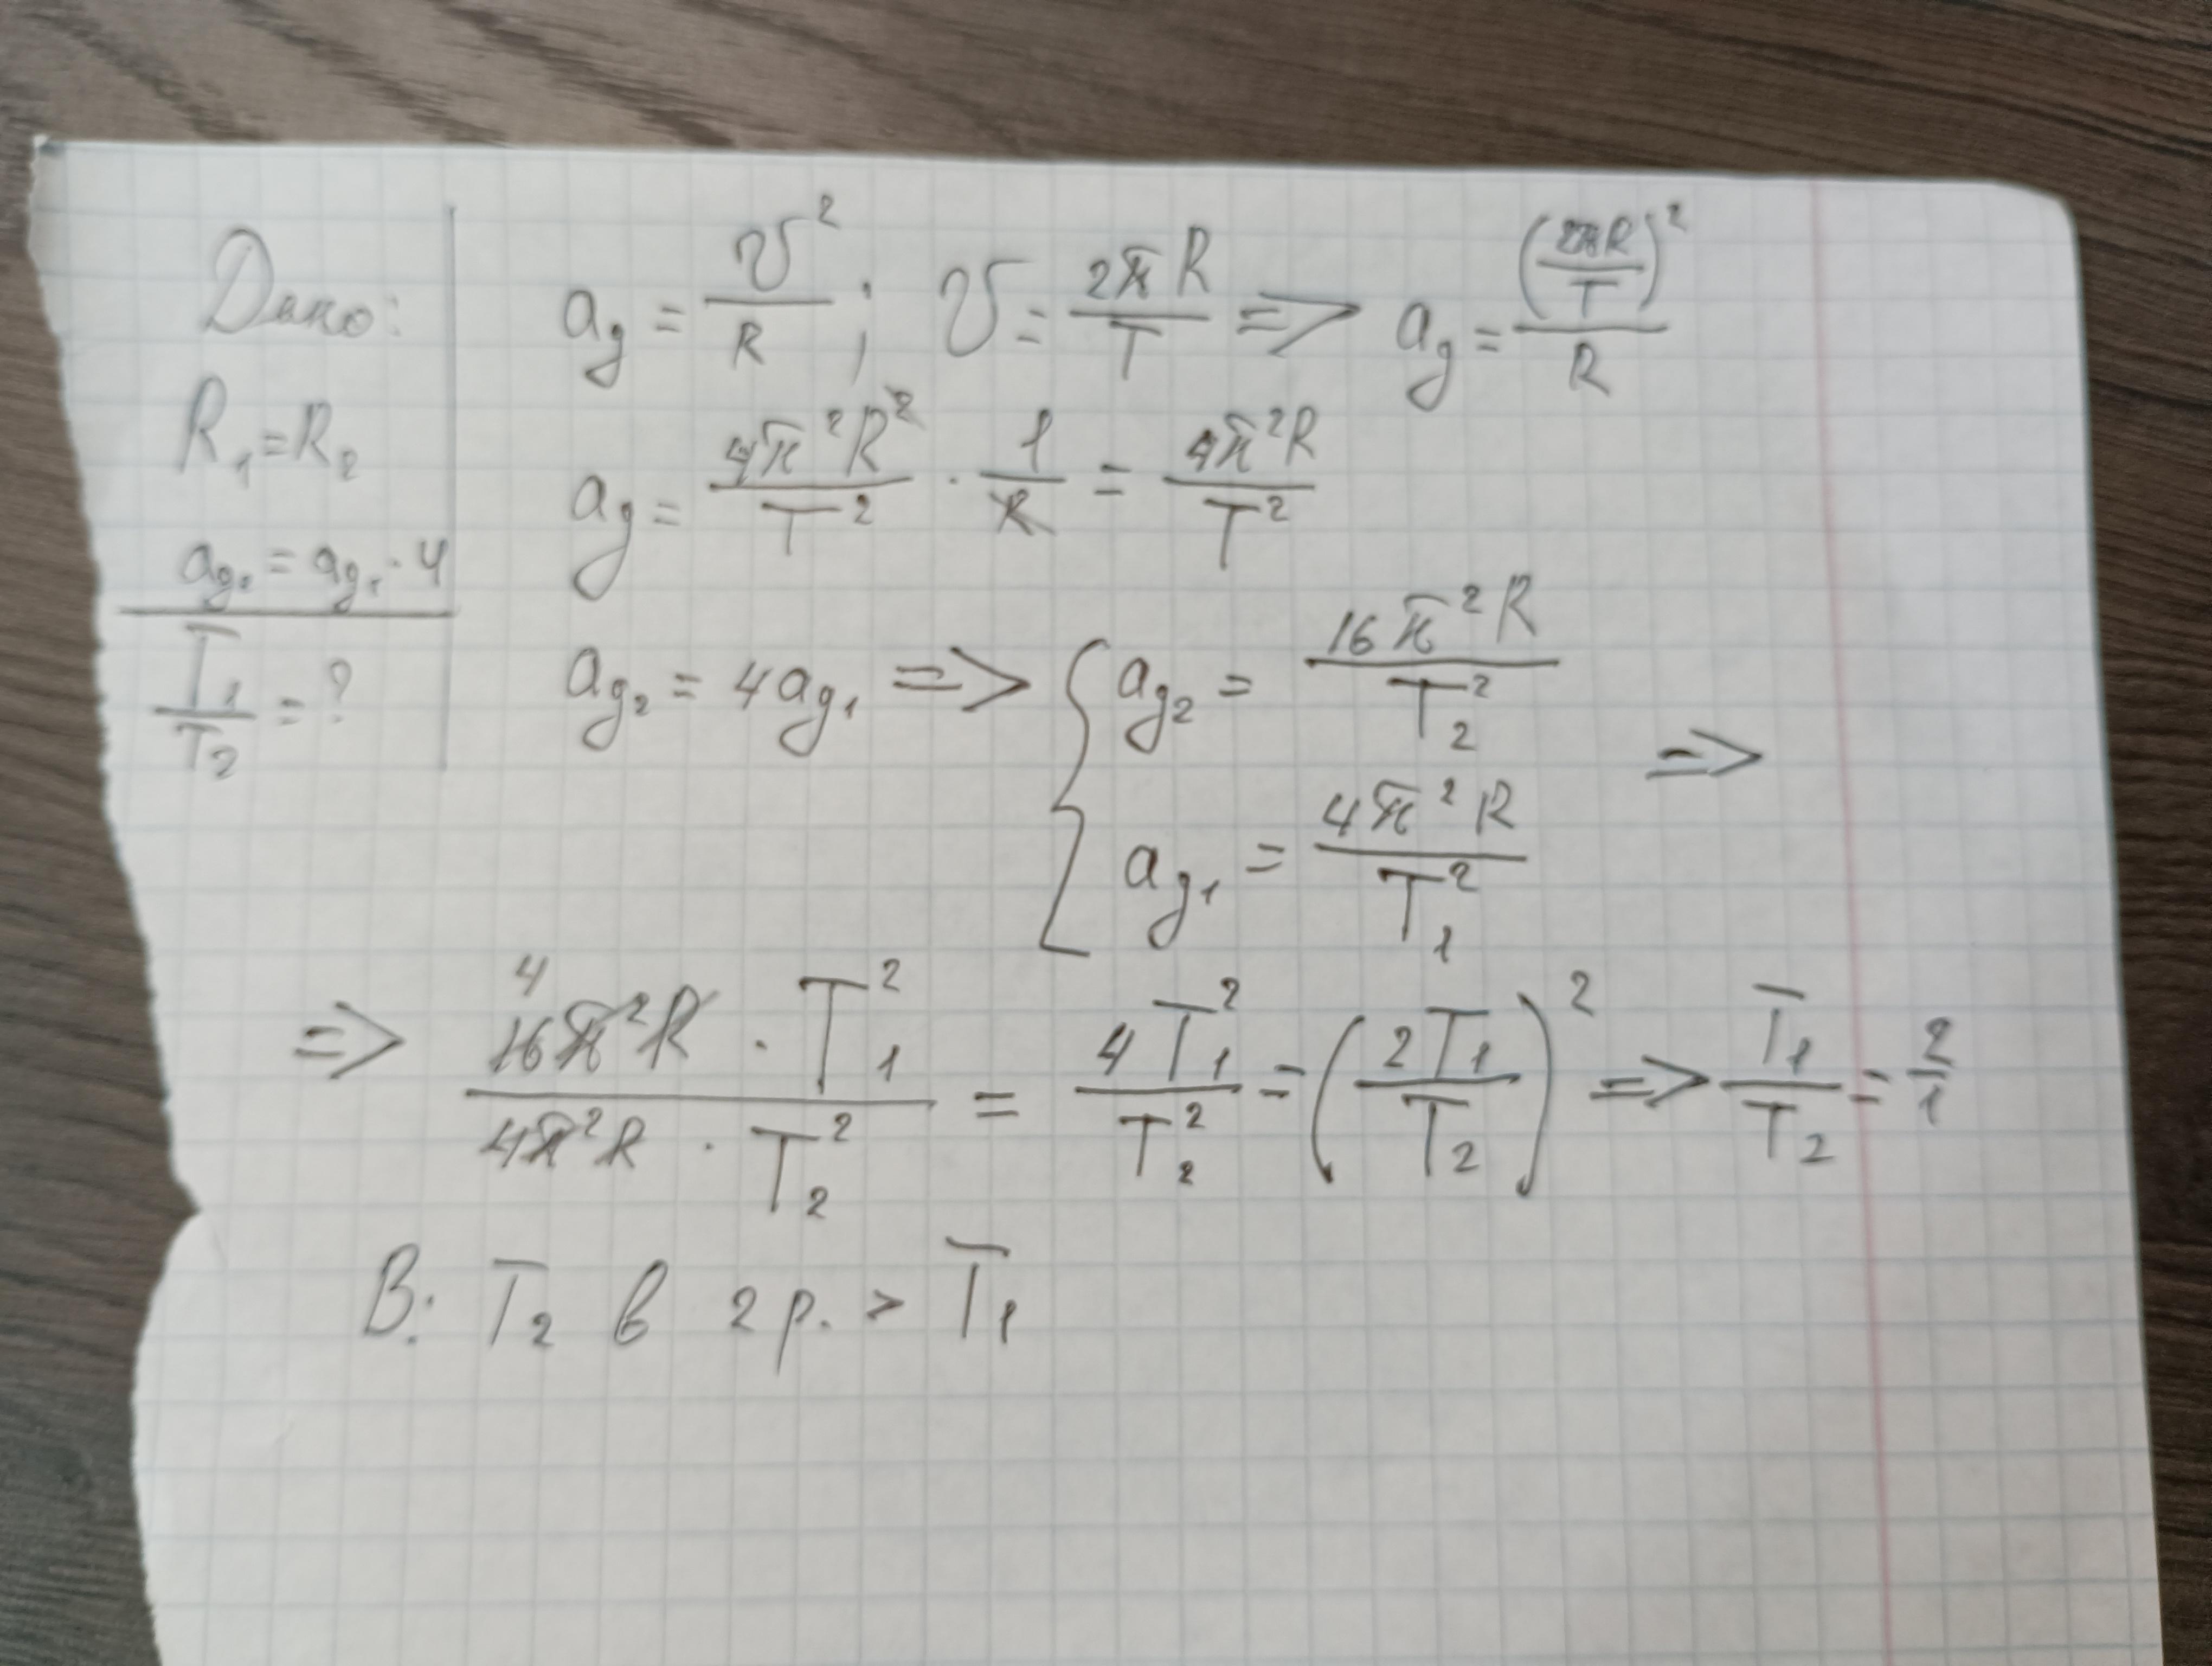 Дано:
R₁ = R₂
a_g₂ = a_g₁ · 4
T₁/T₂ = ?
a_g = v²/R ; v = 2πR/T => a_g = (2πR/T)²/R
a_g = 4π²R²/T² · 1/R = 4π²R/T²
a_g₂ = 4a_g₁ => { a_g₂ = 16π²R/T₂²
a_g₁ = 4π²R/T₁² =>
=> 4 16π²R · T₁² / 4π²R · T₂² = 4T₁²/T₂² = (2T₁/T₂)² => T₁/T₂ = 2/1
В: T₂ в 2 р. > T₁